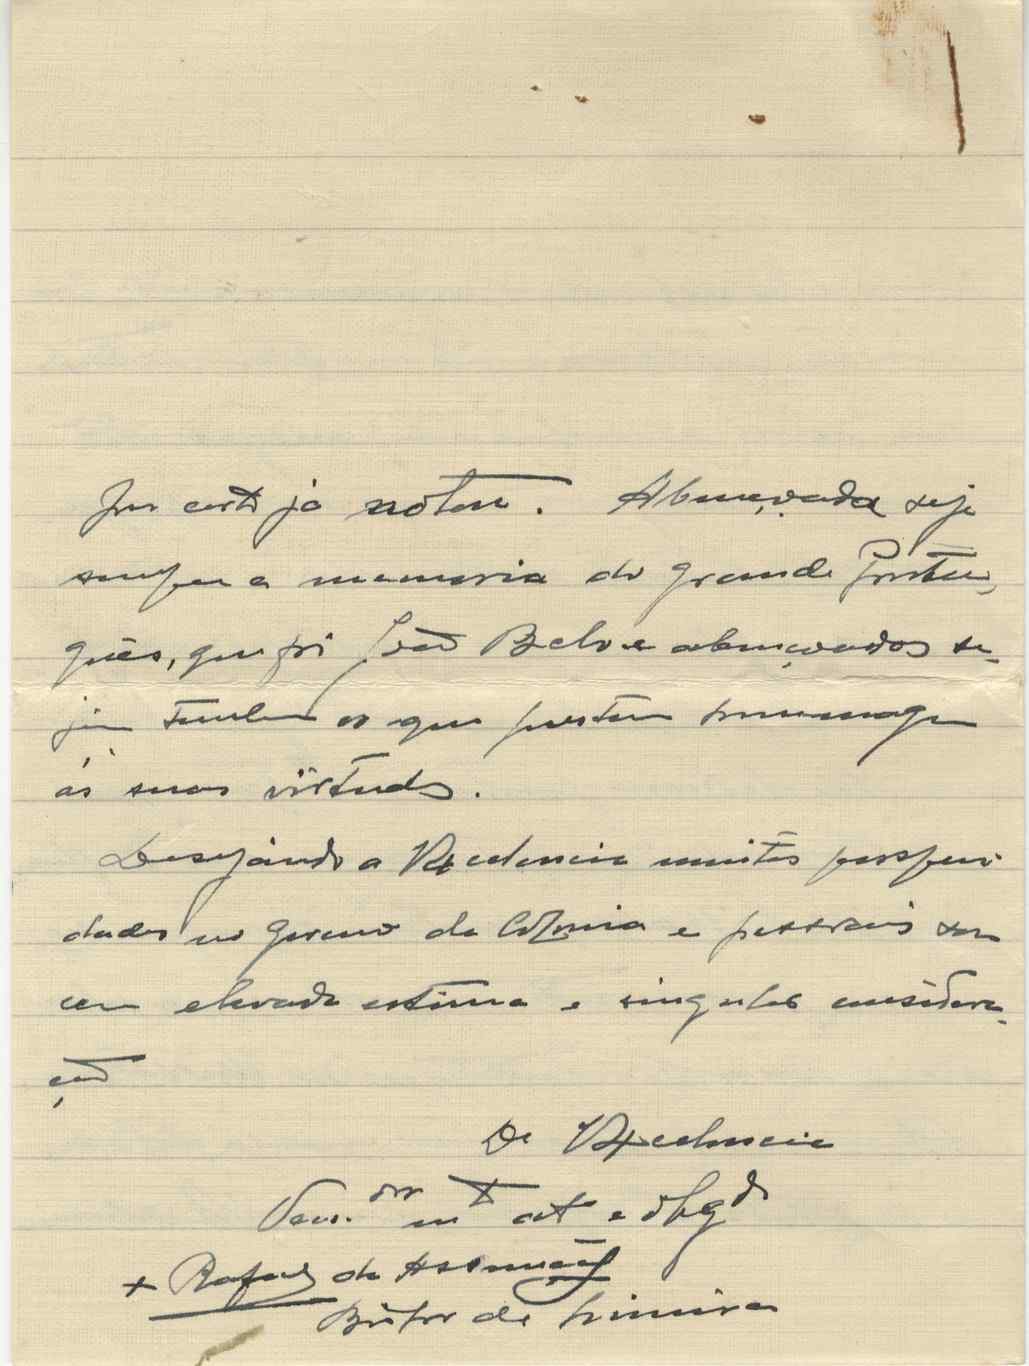 por certo já notou. Abençoada seja
sempre a memoria do grande Portu-
guês, que foi João Belo e abençoados se-
jam tambem os que prestam homenagem
ás suas virtudes.
Desejando a VExcelencia muitas prosperi
dades no Governo da Colonia e pessoais sou
com elevada estima e singular considera-
ção
De VExcelencia
Ven.dor mto atto e obgdo
+ Rafael da Assunção
Bispo de Limira